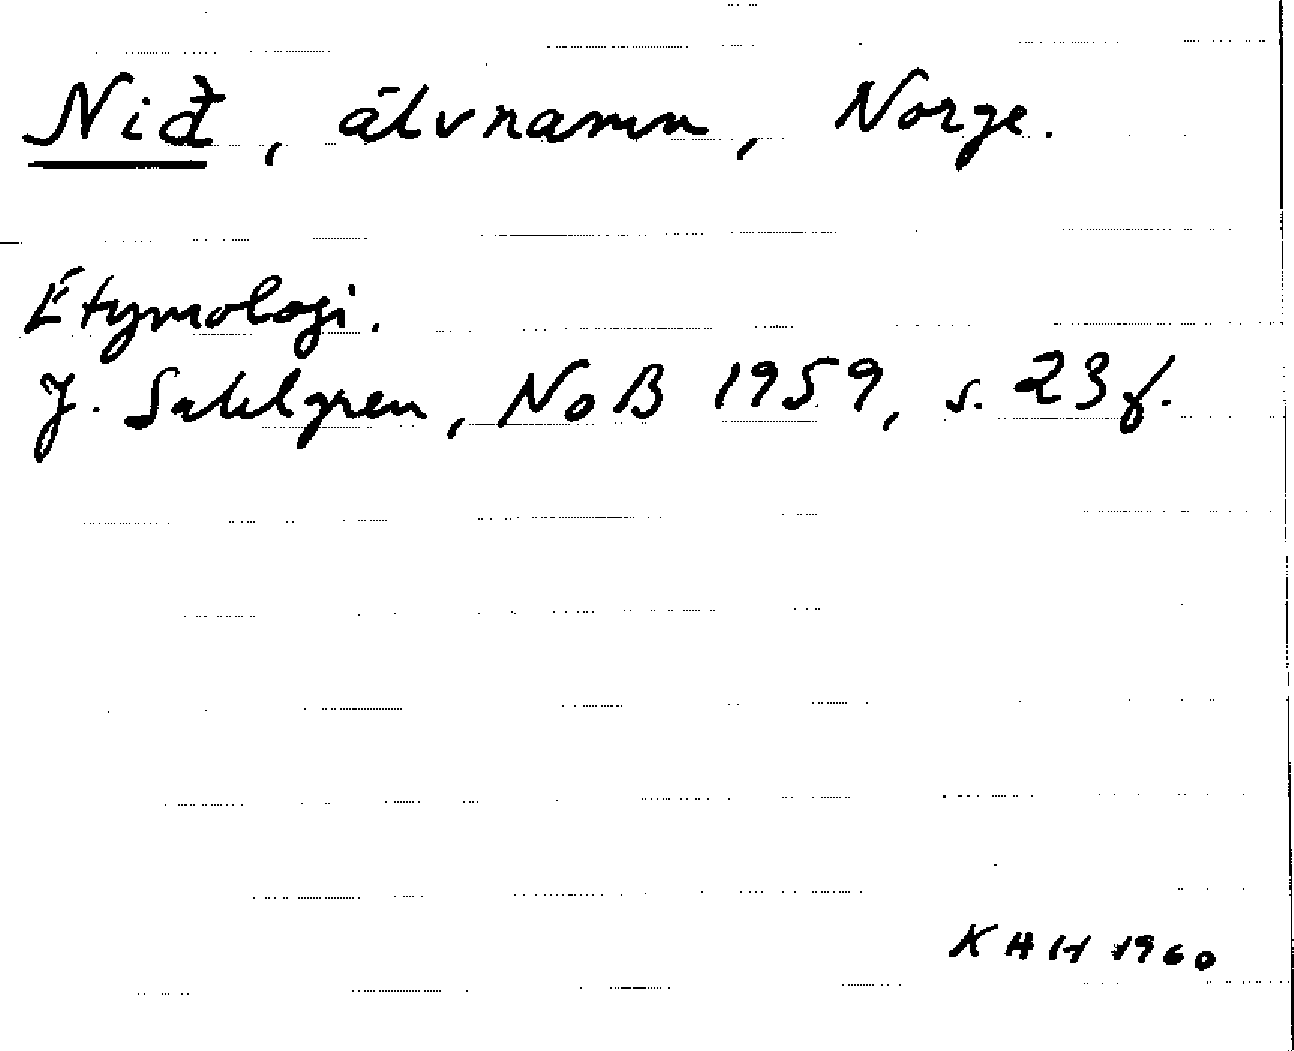 Nið, älvnamn, Norge.
Etymologi.
J. Sahlgren, NoB 1959, s. 23 f.
KAH 1960